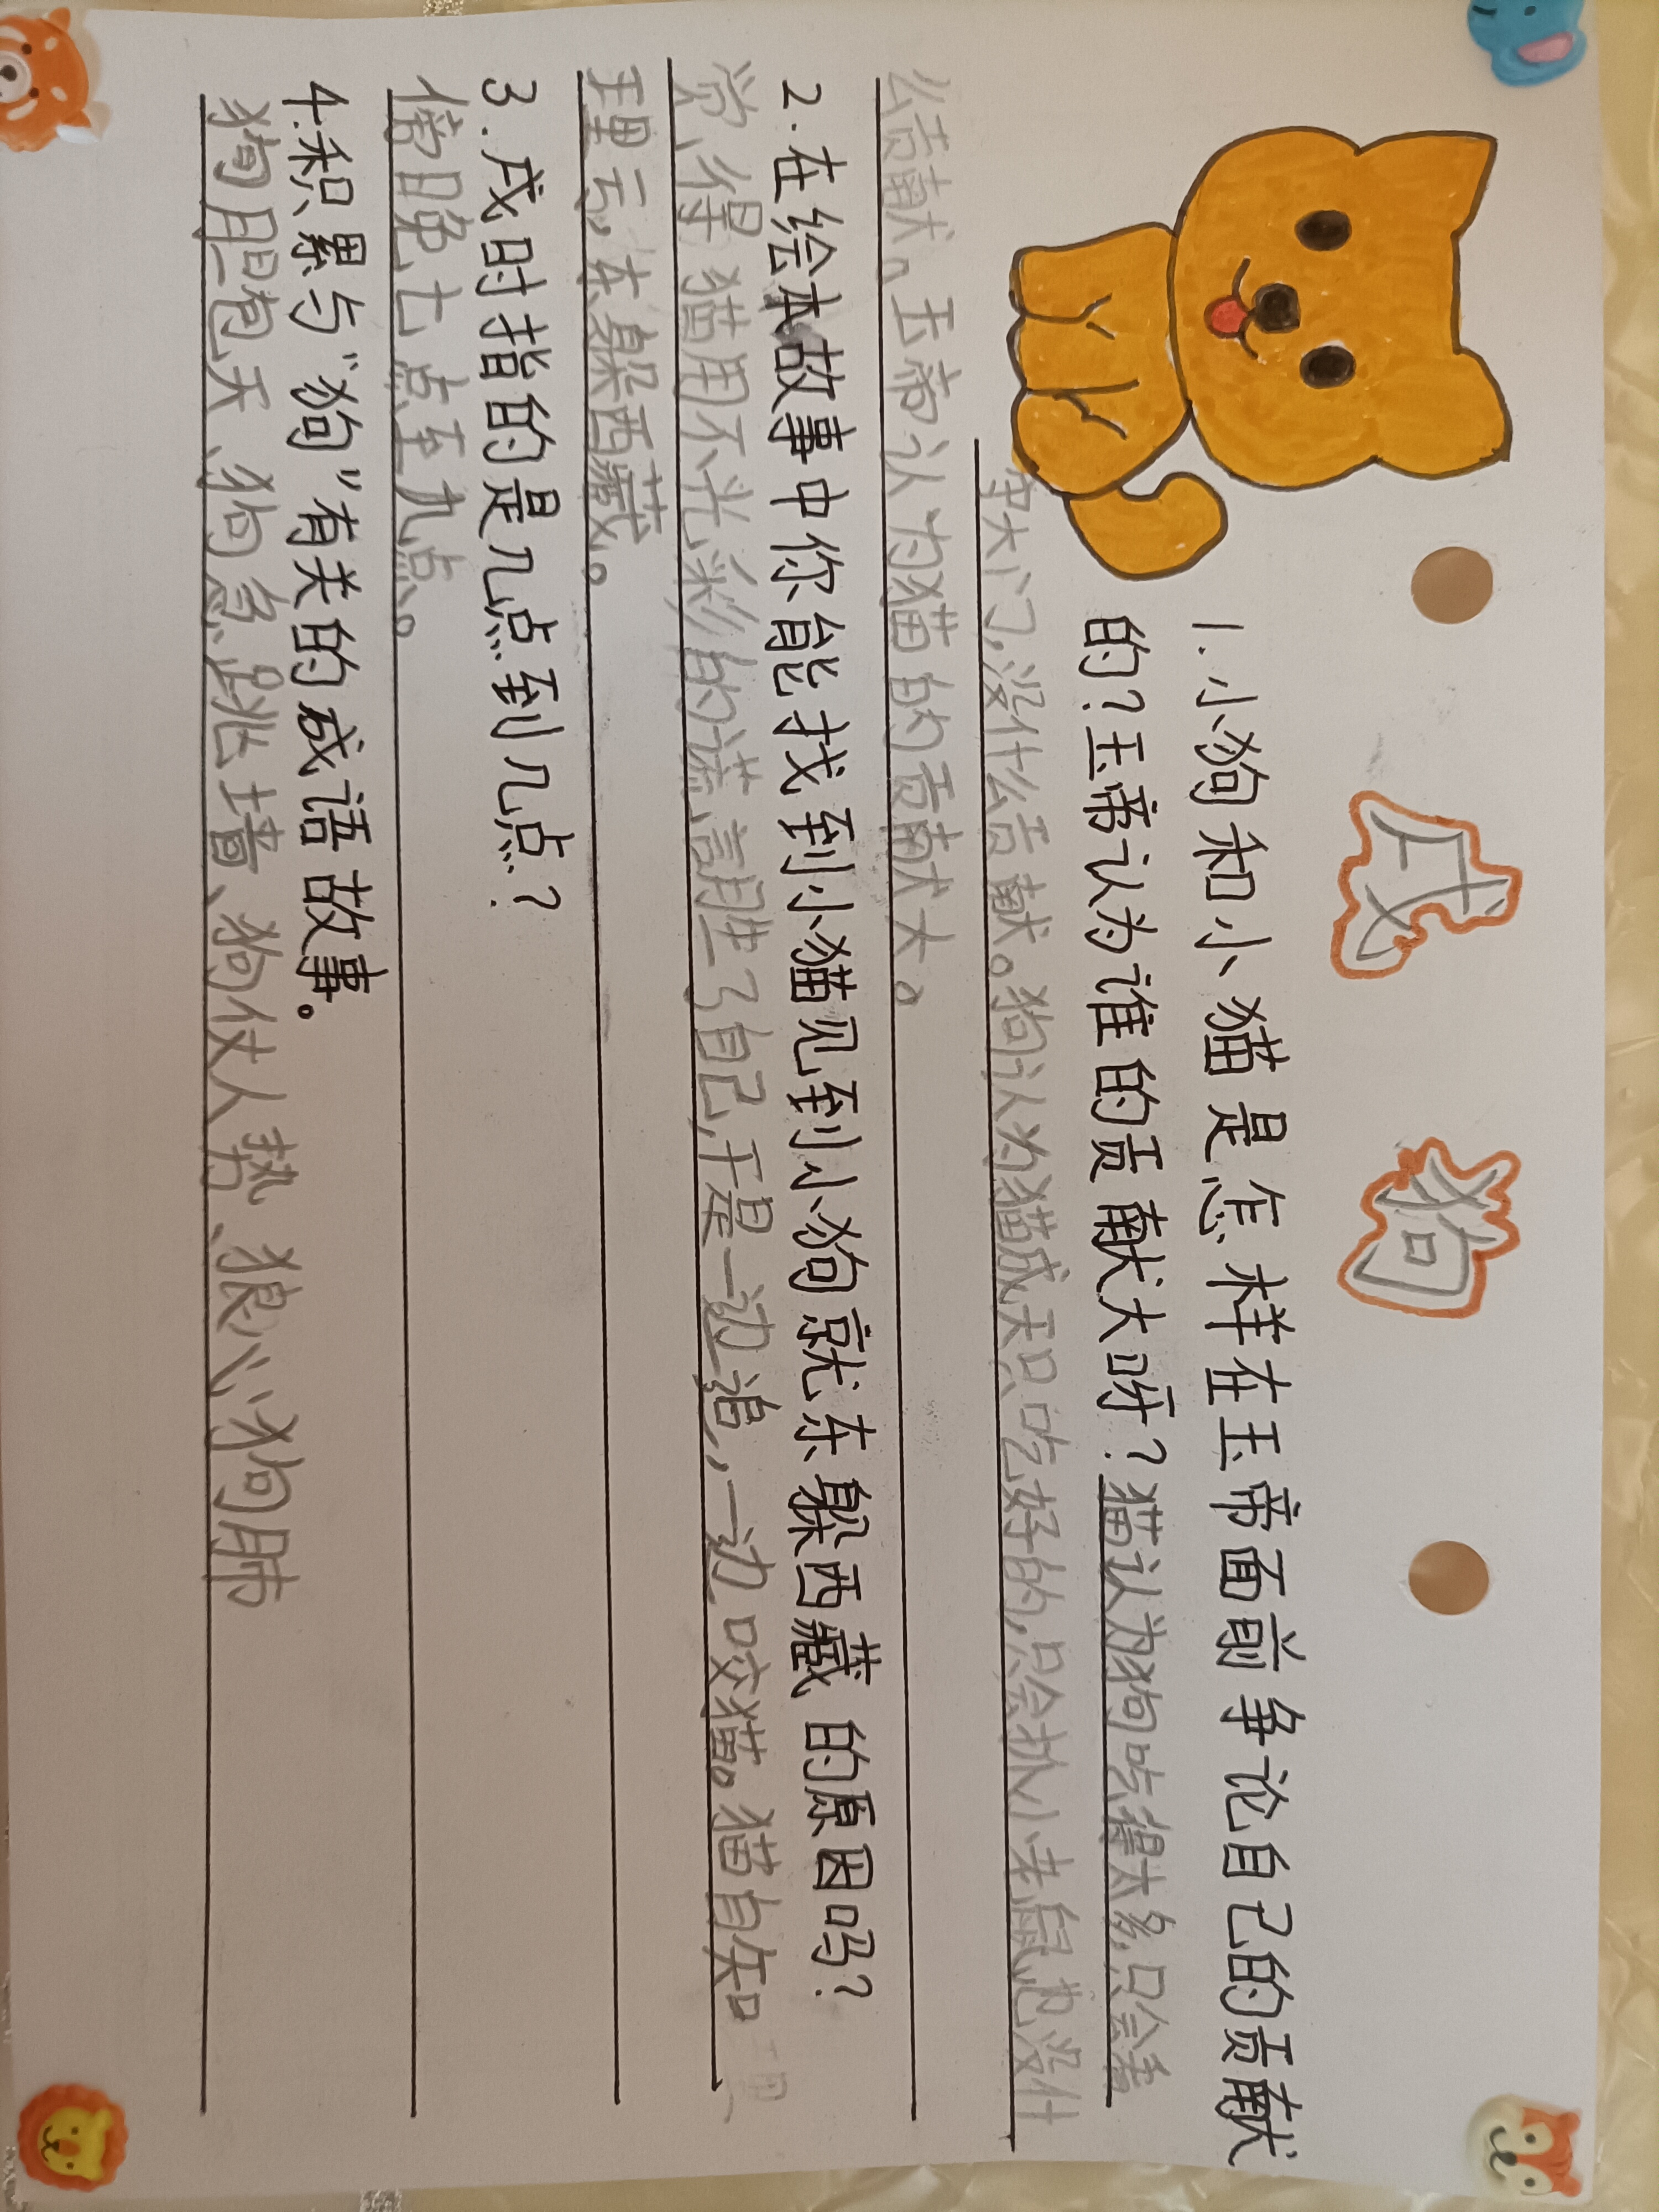 戌 狗
1.小狗和小猫是怎样在玉帝面前争论自己的贡献
的?玉帝认为谁的贡献大呀?猫认为狗吃得太多,只会看
守大门,没什么贡献。狗认为猫成天只吃好的,只会扒小老鼠,也没什
么贡献。玉帝认为猫的贡献大。
2.在绘本故事中你能找到小猫见到小狗就东躲西藏的原因吗?
觉得猫用不光彩的谎言胜了自己,于是一边追,一边咬猫。猫自知
理亏,东躲西藏。
3.戌时指的是几点到几点?
傍晚七点至九点。
4.积累与“狗”有关的成语故事。
狗胆包天、狗急跳墙、狗仗人势、狼心狗肺